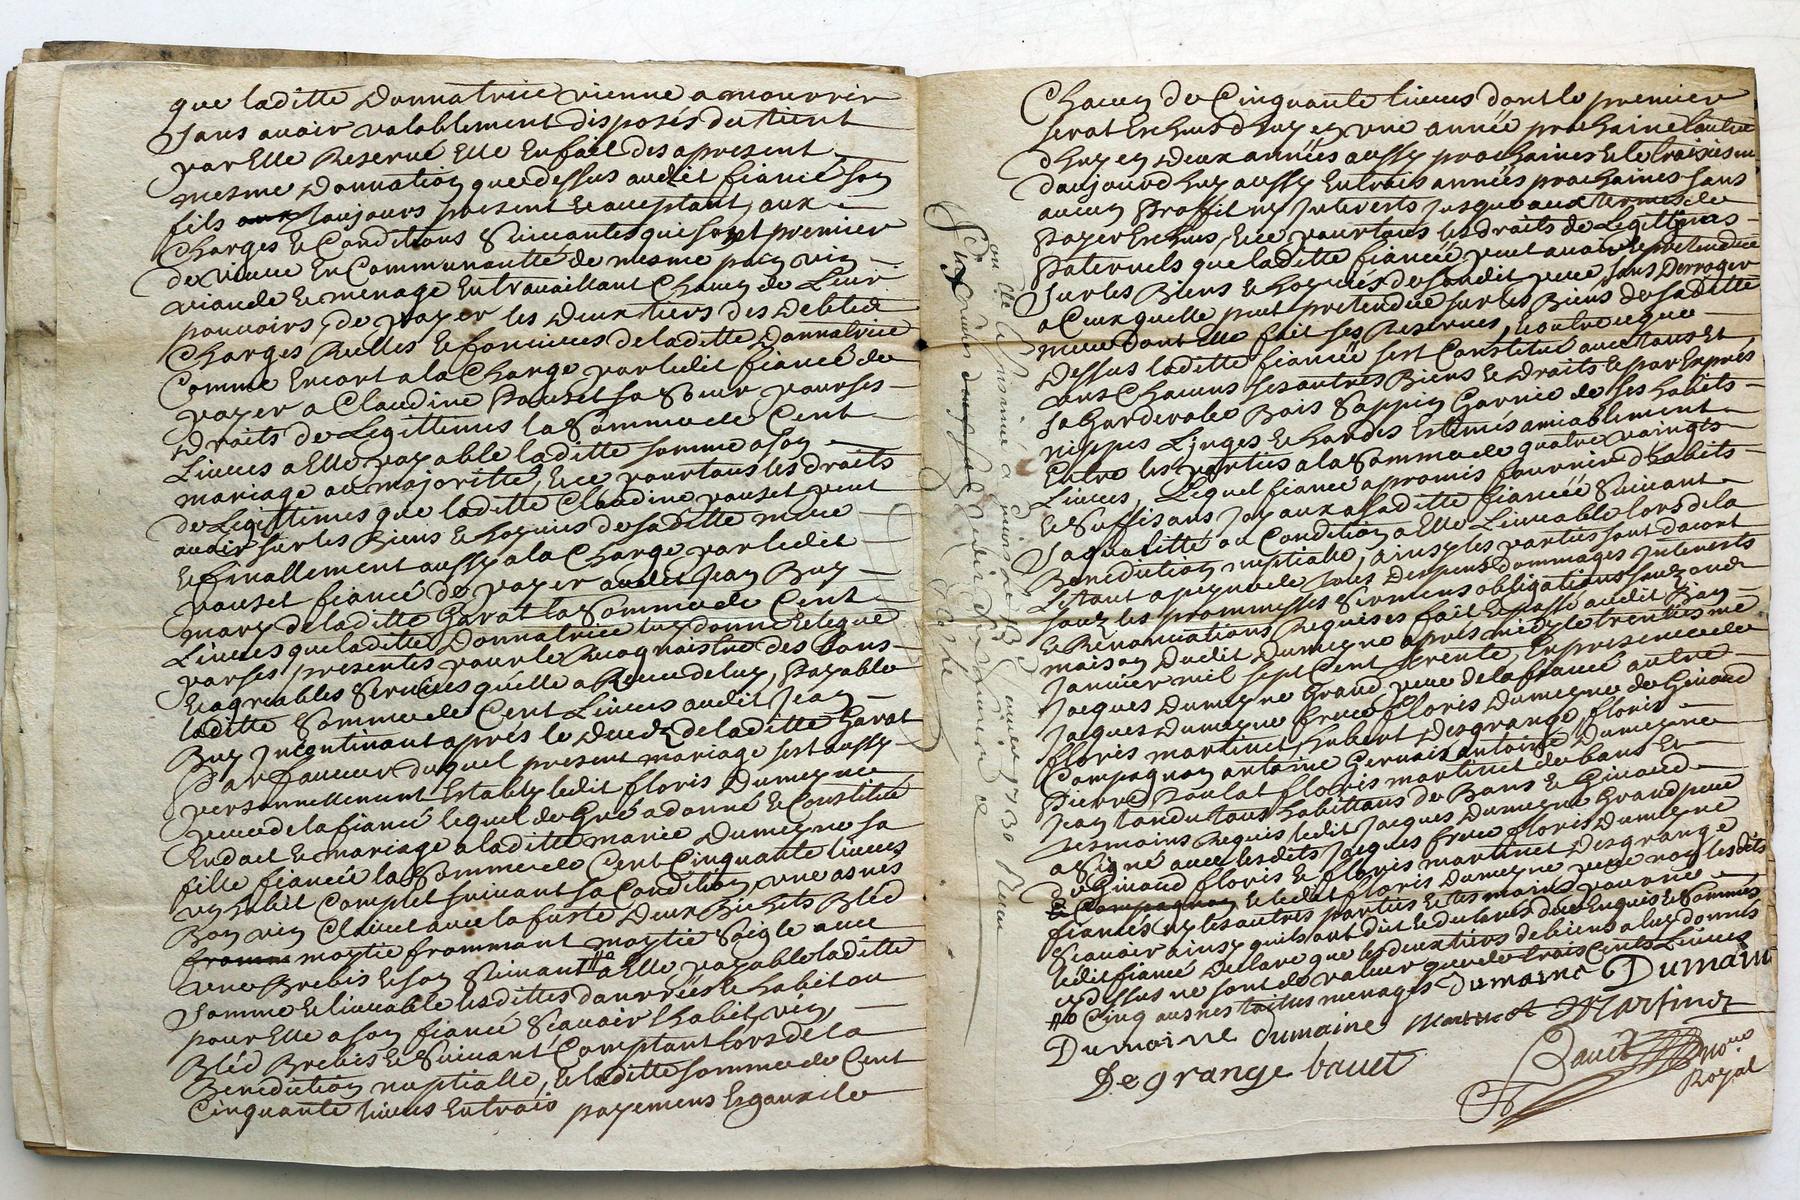 que laditte Donnatrice vienne a mourrir
sans avoir valablement disposés du tient
par Elle Reservé Elle En fait des apresent
mesme Donnation que dessus audit fiancé son
fils toujours present Et acceptant, aux
Charges Et Conditions Suivantes qui sont premier
de vivre En Communautté de mesme pain vin
viande Et menage En travaillant Chacun de Leur
pouvoirs, de payer les Deux tiers des Debtes
Charges Reelles Et foncieres de laditte Donnatrice
Comme Encort a la Charge par ledit fiancé de
payer a Claudine Pauset sa Sœur pour ses
Droits de Legittimes la Somme de Cent
Livres a Elle payable laditte somme a son
mariage ou majoritté, Et ce pour tous les droits
de Legittimes que laditte Claudine pauset peut
avoir sur les Biens Et hoyries de saditte mere
Et finallement aussy a la Charge par ledit
pauset fiancé de payer audit Jean Buy
mary de laditte Gavat la Somme de Cent
Livres que laditte Donnatrice luy donne Et legue
par ses presentes pour le Recognoistre des bons
Et agreables Services qu'elle a Receu de luy, Payable
laditte Somme de Cent Livres audit Jean
Buy Incontinant après le Decedz de laditte Gavat
Par faveur duquel present mariage s'est aussy
personnellement Establ y ledit floris Dumeyne
pere de la fiancé lequel de Gré a donné Et Constitué
En dot Et mariage a laditte mariée Dumeyne sa
fille fiancée la Somme de Cent Cinquante livres
un habit Complet suivant sa Condition, une asnés
Bon vin Clairet avec la futte Deux Bichets Bled
moytié frommant moytié Seigle avec
une Brebis Et son Suivant a Elle payable laditte
somme Et livrable lesdittes danrrées Et habit ou
pour Elle a son fiancé Scavoir l'habit, vin,
Bléd Brebis Et Suivant Comptant lors de la
Benediction nuptialle, Et laditte somme de Cent
Cinquante livres En trois payemens Egaux de
Chacun de Cinquante livres dont le premier
serat Escheus d'huy en une année prochaine l'autre
d'huy en Deux années aussy prochaines Et le troisiesme
daujourd'huy aussy En trois années prochaines sans
aucun Proffit ny Interests jusqu'aux termes de
Payer Escheus, Et ce pour tous les droits de Legittimes
Paternels que laditte fiancée peut avoir Et pretendre
sur les Biens Et hoyries de sondit pere, sans Derroger
a Ceux quelle peut pretendre sur les Biens de saditte
mere Dont Elle fait ses Reserves, Et outre ce que
Dessus laditte fiancée s'est Constitué avec tous Et
uns Chacuns ses autres Biens Et Droits Et par Exprés
sa Garderobe Bois Sappin Garnie de ses habits
nippes Linges Et hardes Estimés amiablement
Entre les parties a la Somme de quatre vaingts
Livres, Lequel fiancé a promis fournir d'habits
Et Suffisans Joyaux a saditte fiancée Suivant
sa qualitté ou Condition a Elle Livrable lors de la
Benediction nuptialle, ainsy les parties sont d'acort
L'Estant a peyne de tous Despens dommages Interests
souz les prommesses Sermens obligations souz ande
Et Renonciations Requises fait Et passé audit Ban
maison Dudit Dumeyne après midy le trentiesme
Janvier mil sept Cent Trente, En presence de
Jacques Dumeyne Grand pere de la fiancé autre
Jacques Dumeyne frere floris Dumeyne de Ginaud
floris martinet, hubert Desgrange floris
Compagnon antoine Gervais antoine Dumeyne
Pierre Poulat floris martinet de bans Et
Jean tandu tous habittans de Bans Et Ginaud
Tesmoins Requis ledit Jacques Dumeyne Grand pere
a Signé avec lesdits Jacques frere floris Dumeyne
de Ginaud floris Et floris martinet Desgrange
Et Compagnon Et ledit floris Dumeyne pere non lesdits
fiancés ny les autres parties Et tesmoins pour ne
Scavoir ainsy quils ont dit Et declarés de ce Enquis Et Sommés
ledit fiancé Declare que les deux tiers de biens a luy donnés
cy dessus ne sont de valeur que de trois Cents Livres
Cinq asnes
Dumaine Dumain
Dumaine dumaine martinet Martinet
Degrange bauet
Bauet
Royal